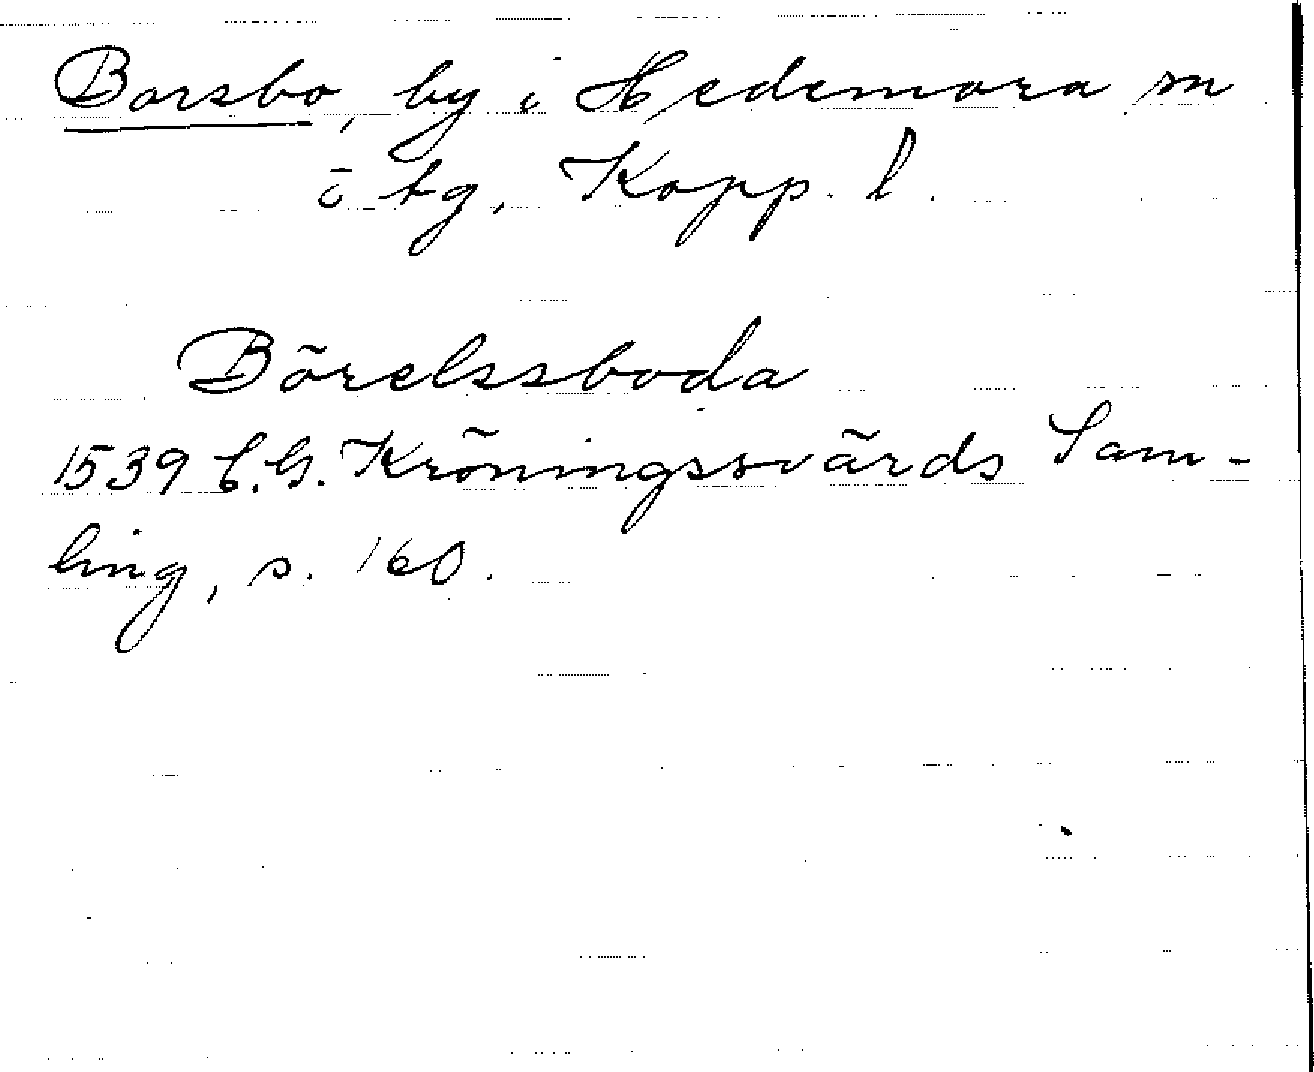 Borsbo, by i Hedemora sn
o tg, Kopp. l.
Börelssboda
1539 C.G. Kröningssvärds Sam-
ling, s. 160.